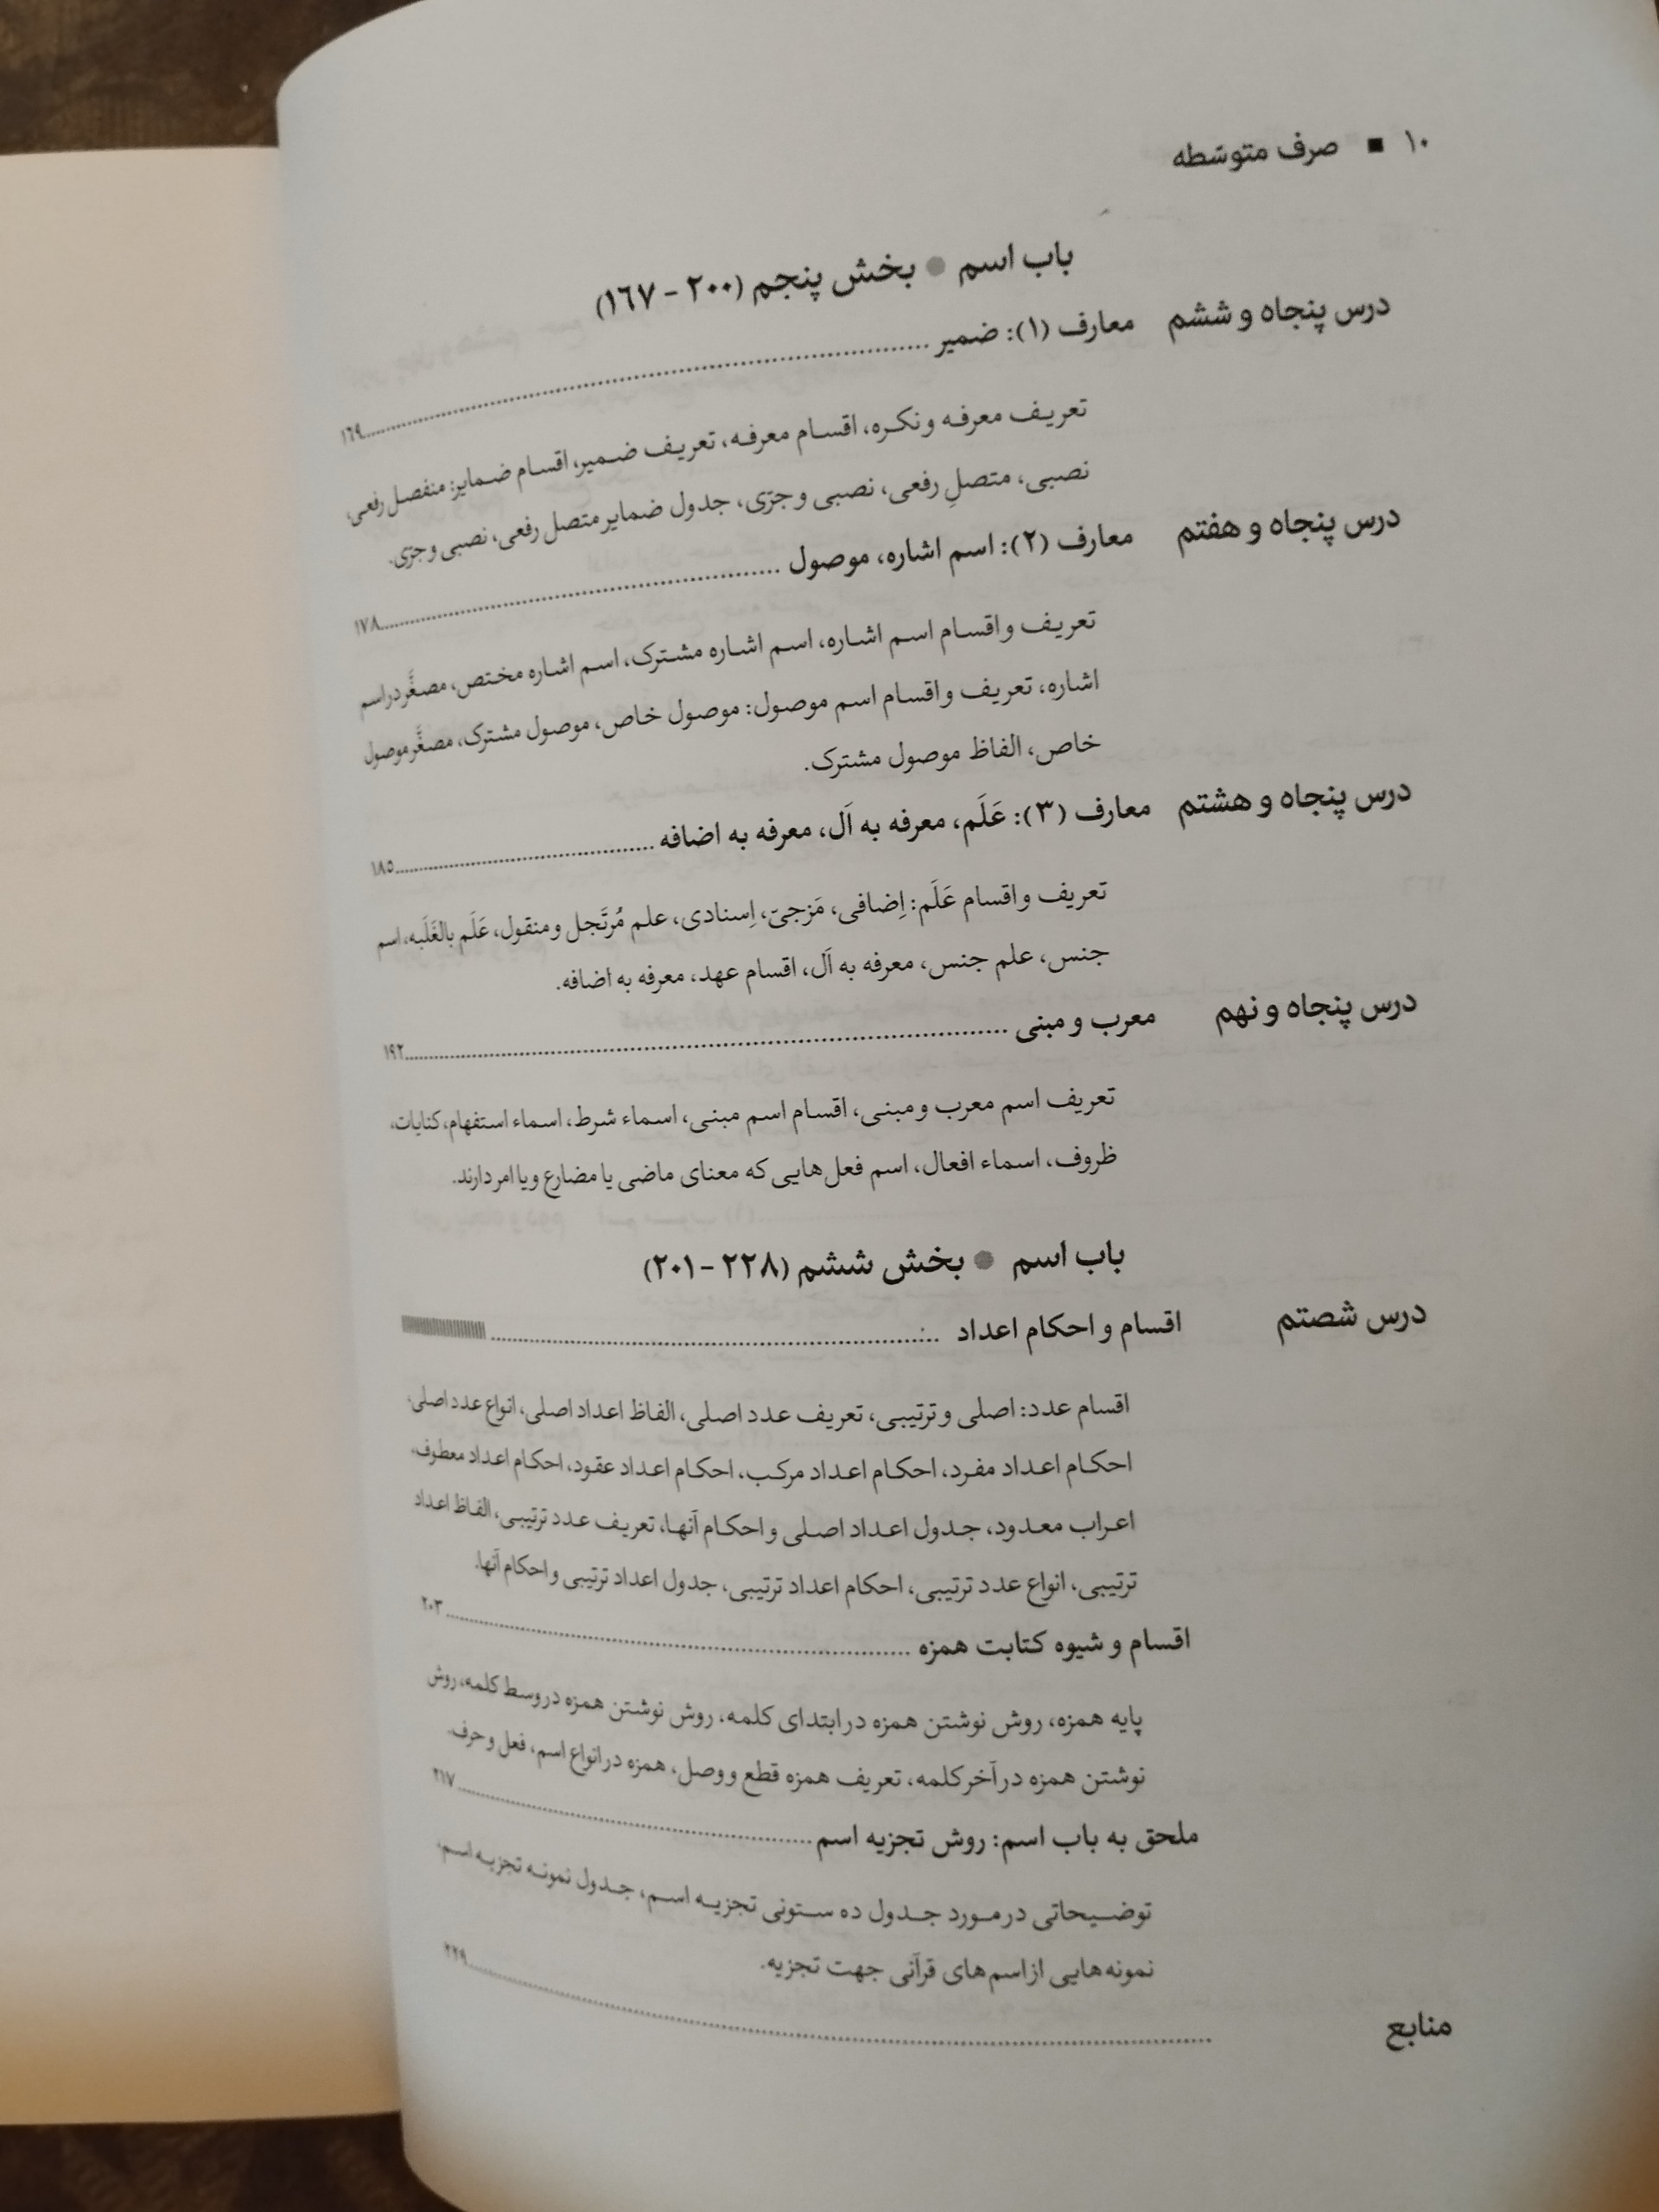 ۱۰ ■ صرف متوسّطه
باب اسم ● بخش پنجم (۲۰۰ - ۱۶۷)
درس پنجاه و ششم معارف (۱): ضمیر ........ ۱۶۹
تعریف معرفه و نکره، اقسام معرفه، تعریف ضمیر، اقسام ضمایر: منفصل رفعی،
نصبی، متصلِ رفعی، نصبی و جرّی، جدول ضمایر متصل رفعی، نصبی و جرّی.
درس پنجاه و هفتم معارف (۲): اسم اشاره، موصول ........ ۱۷۸
تعریف و اقسام اسم اشاره، اسم اشاره مشترک، اسم اشاره مختص، مصغَّر در اسم
اشاره، تعریف و اقسام اسم موصول: موصول خاص، موصول مشترک، مصغَّر موصول
خاص، الفاظ موصول مشترک.
درس پنجاه و هشتم معارف (۳): عَلَم، معرفه به اَل، معرفه به اضافه ........ ۱۸۵
تعریف و اقسام عَلَم: اِضافی، مَزجیّ، اِسنادی، علم مُرتَجل و منقول، عَلَم بالغَلَبه، اسم
جنس، علم جنس، معرفه به اَل، اقسام عهد، معرفه به اضافه.
درس پنجاه و نهم معرب و مبنی ........ ۱۹۲
تعریف اسم معرب و مبنی، اقسام اسم مبنی، اسماء شرط، اسماء استفهام، کنایات،
ظروف، اسماء افعال، اسم فعل‌هایی که معنای ماضی یا مضارع و یا امر دارند.
باب اسم ● بخش ششم (۲۲۸ - ۲۰۱)
درس شصتم اقسام و احکام اعداد ........
اقسام عدد: اصلی و ترتیبی، تعریف عدد اصلی، الفاظ اعداد اصلی، انواع عدد اصلی،
احکام اعداد مفرد، احکام اعداد مرکب، احکام اعداد عقود، احکام اعداد معطوف،
اعراب معدود، جدول اعداد اصلی و احکام آنها، تعریف عدد ترتیبی، الفاظ اعداد
ترتیبی، انواع عدد ترتیبی، احکام اعداد ترتیبی، جدول اعداد ترتیبی و احکام آنها.
اقسام و شیوه کتابت همزه ........ ۲۰۳
پایه همزه، روش نوشتن همزه در ابتدای کلمه، روش نوشتن همزه در وسط کلمه، روش
نوشتن همزه در آخر کلمه، تعریف همزه قطع و وصل، همزه در انواع اسم، فعل و حرف.
ملحق به باب اسم: روش تجزیه اسم ........ ۲۱۷
توضیحاتی در مورد جدول ده ستونی تجزیه اسم، جدول نمونه تجزیه اسم،
نمونه‌هایی از اسم‌های قرآنی جهت تجزیه.
منابع ........ ۲۲۹